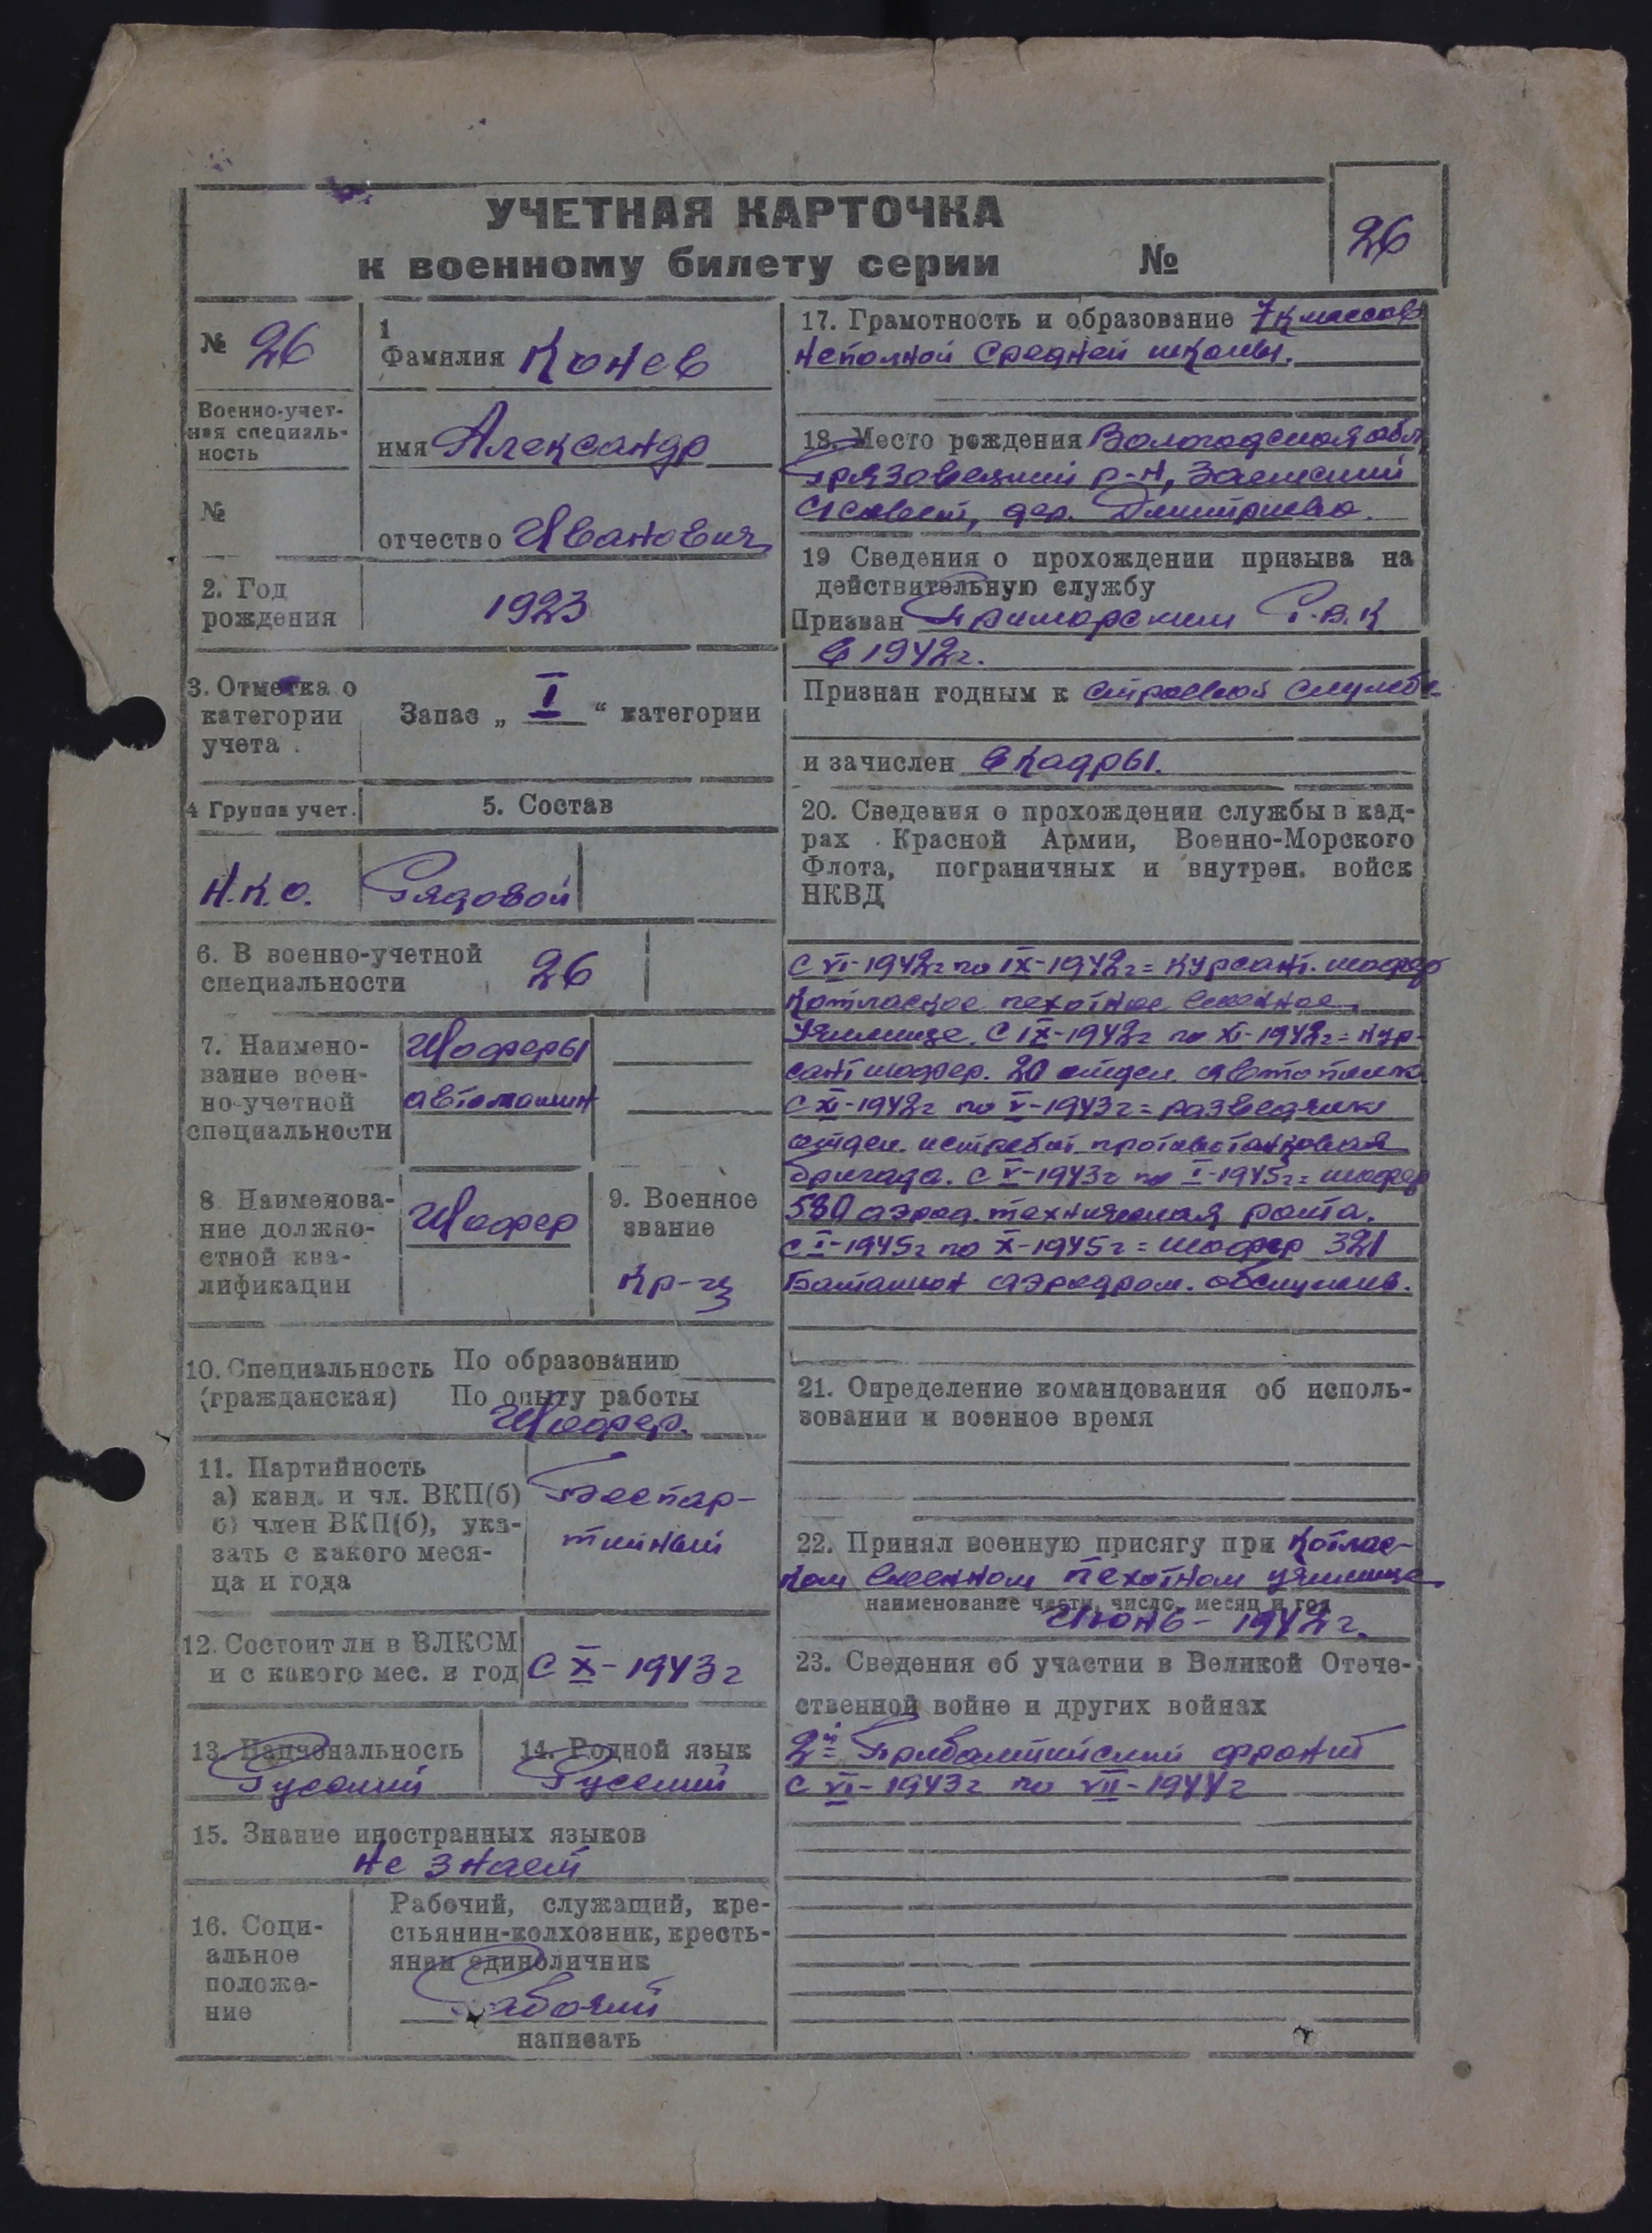 УЧЕТНАЯ КАРТОЧКА
к военному билету серии №
26
№ 26
Военно-учет-
ная специаль-
ность
№
1
Фамилия Конев
имя Александр
отчество Иванович
2. Год
рождения
1923
3. Отметка о
категории
учета
Запас „ I “ категории
4 Группа учет.
5. Состав
Н.К.О.
Рядовой
6. В военно-учетной
специальности
26
7. Наимено-
вание воен-
но-учетной
специальности
Шоферы
автомашин
8 Наименова-
ние должно-
стной ква-
лификации
Шофер
9. Военное
звание
Кр-ц
10. Специальность
(гражданская)
По образованию
По опыту работы
Шофер.
11. Партийность
а) канд. и чл. ВКП(б)
б) член ВКП(б), ука-
зать с какого меся-
ца и года
Беспар-
тийный
12. Состоит ли в ВЛКСМ
и с какого мес. и год
С X-1943г
13. Национальность
Русский
14. Родной язык
Русский
15. Знание иностранных языков
не знает
16. Соци-
альное
положе-
ние
Рабочий, служащий, кре-
стьянин-колхозник, кресть-
янин единоличник
Рабочий
написать
17. Грамотность и образование 7 классов
неполной средней школы.
18. Место рождения Вологодская обл
Грязовецкий р-н,
с/совет, дер. Дмитриево.
19 Сведения о прохождении призыва на
действительную службу
Призван Приморским Р.В.К
в 1942г.
Признан годным к строевой службе
и зачислен в кадры.
20. Сведения о прохождении службы в кад-
рах Красной Армии, Военно-Морского
Флота, пограничных и внутрен. войск
НКВД
С VI-1942г по IX-1942г = курсант. шофер
Котлаское пехотное военное
Училище. С IX-1942г по XI-1942г = кур-
сант шофер. 20 отдел. автополк
С XI-1942г по V-1943г = разведчик
отдел. истребит противотанковая
бригада. С V-1943г по I-1945г = шофер
580 аэрод. техническая рота.
с I-1945г по X-1945г = шофер 321
Баталион аэродром. обслужив.
21. Определение командования об исполь-
зовании и военное время
22. Принял военную присягу при Котлас-
ком военном пехотном училище
наименование части, число, месяц и год
Июнь - 1942г.
23. Сведения об участии в Великой Отече-
ственной войне и других войнах
2й Прибалтийский фронт
с VI-1943г по VII-1944г